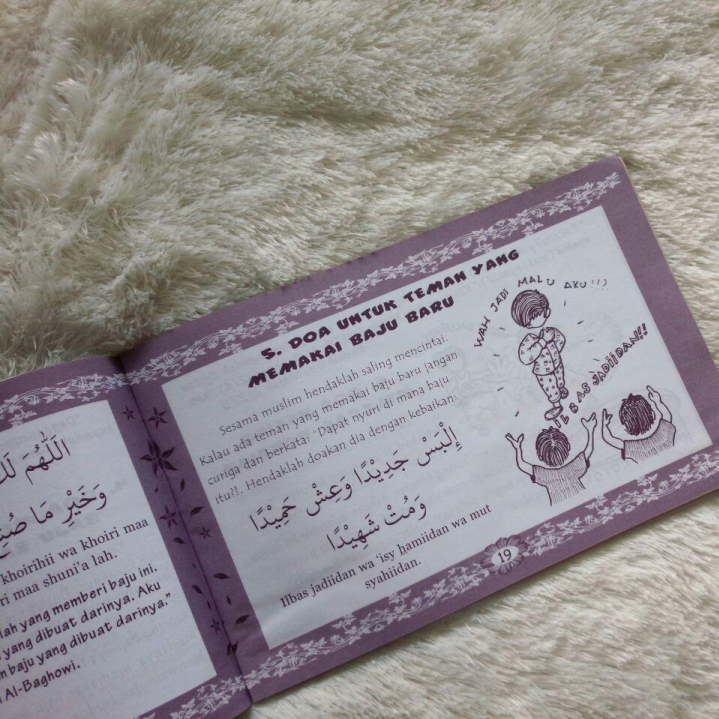 اللَّهُمَّ لَكَ
وَخَيْرِ مَا صُنِعَ
khoirihii wa khoiri maa
ri maa shuni'a lah.
lah yang memberi baju ini.
yang dibuat darinya. Aku
n baju yang dibuat darinya."
Al-Baghowi.
5. DOA UNTUK TEMAN YANG
MEMAKAI BAJU BARU
Sesama muslim hendaklah saling mencintai.
Kalau ada teman yang memakai baju baru jangan
curiga dan berkata: "Dapat nyuri di mana baju
itu?!. Hendaklah doakan dia dengan kebaikan:
إِلْبَسْ جَدِيْدًا وَعِشْ حَمِيْدًا
وَمُتْ شَهِيْدًا
Ilbas jadiidan wa 'isy hamiidan wa mut
syahiidan.
WAH JADI MALU AKU!!!
ILBAS JADIIDAN!!
19